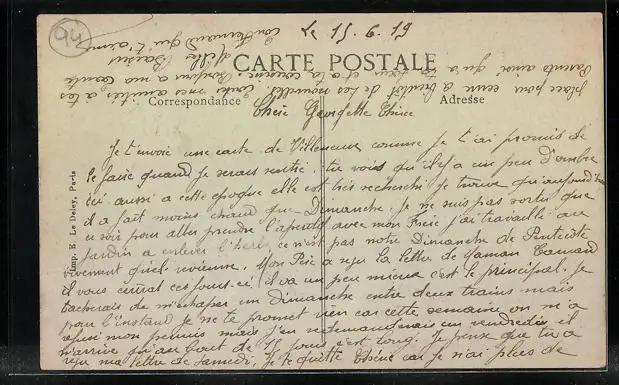 94
Le 15.6.19
CARTE POSTALE
Correspondance
Adresse
Chère Georgette Chérie
Je t'envoie une carte de Villeneuve comme je t'ai promis de
le faire quand je serais rentré. tu vois qu'il y a un peu d'ombre
ici aussi a cette epoque elle est très recherché je trouve qu'aujourd'hui
il a fait moins chaud que Dimanche. Je ne suis pas sortis que
ce soir pour aller prendre l'aperitif avec mon Frère j'ai travaillé au
jardin a enlever l'herbe ce n'est pas notre Dimanche de Pentecôte
vivement qu'el revienne. Mon Père a reçu la lettre de Maman
il vous ces jours-ci. il va un peu mieux c'est le principal. Je
tacherais de m'echaper un Dimanche entre deux trains mais
pour l'instant je ne te promet rien car cette semaine on m'a
refusé mon permis mais j'en redemanderais un vendredi il
n'arrive qu'au bout de 15 jours c'est long. Je pense que tu a
reçu ma lettre de Samedi, Je te quitte Chérie car je n'ai plus de
place pour ecrire a bientôt de tes nouvelles mes amitiés a tes
Parents ainsi qu'a ta Sœur et a ta cousine Bonjour a
Mille Baisers
ton Fernand qui t'aime
Imp. E. Le Deley, Paris